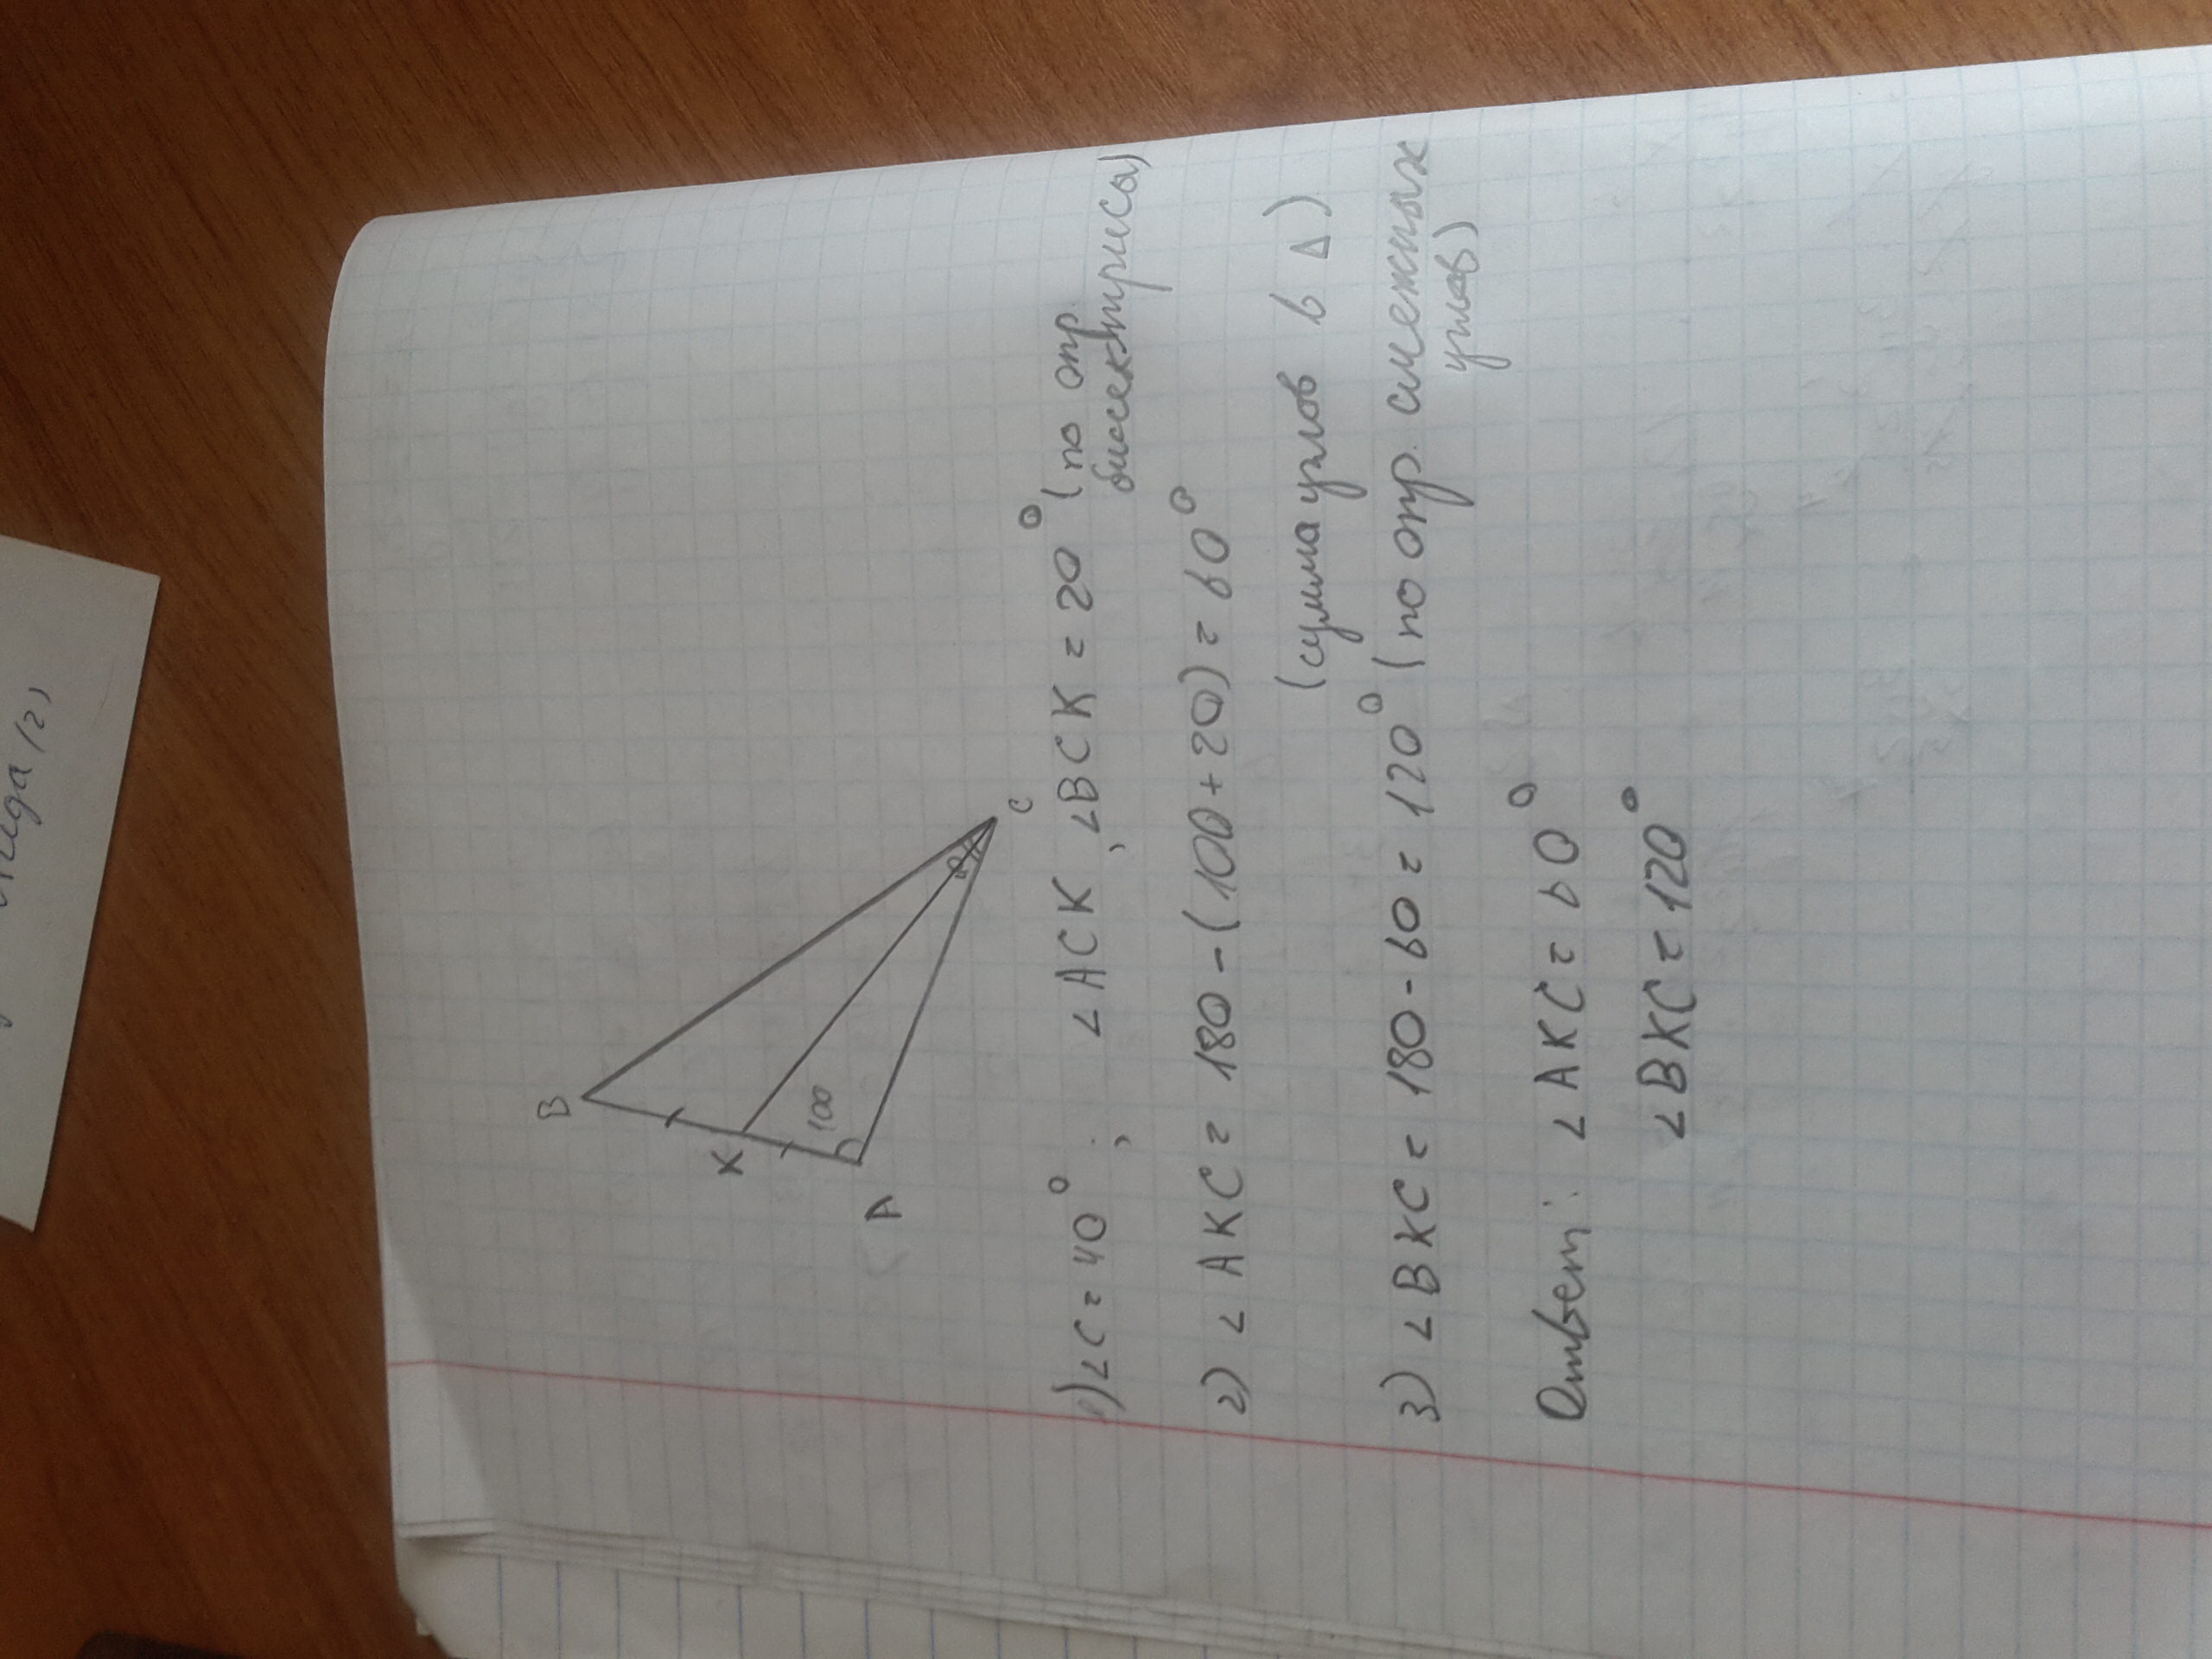 B
K
100
A
C
1) ∠C = 40°; ∠ACK, ∠BCK = 20° (по опр.
биссектрисы)
2) ∠AKC = 180 - (100 + 20) = 60°
(сумма углов в △)
3) ∠BKC = 180 - 60 = 120° (по опр. смежных
углов)
Ответ: ∠AKC = 60°
∠BKC = 120°